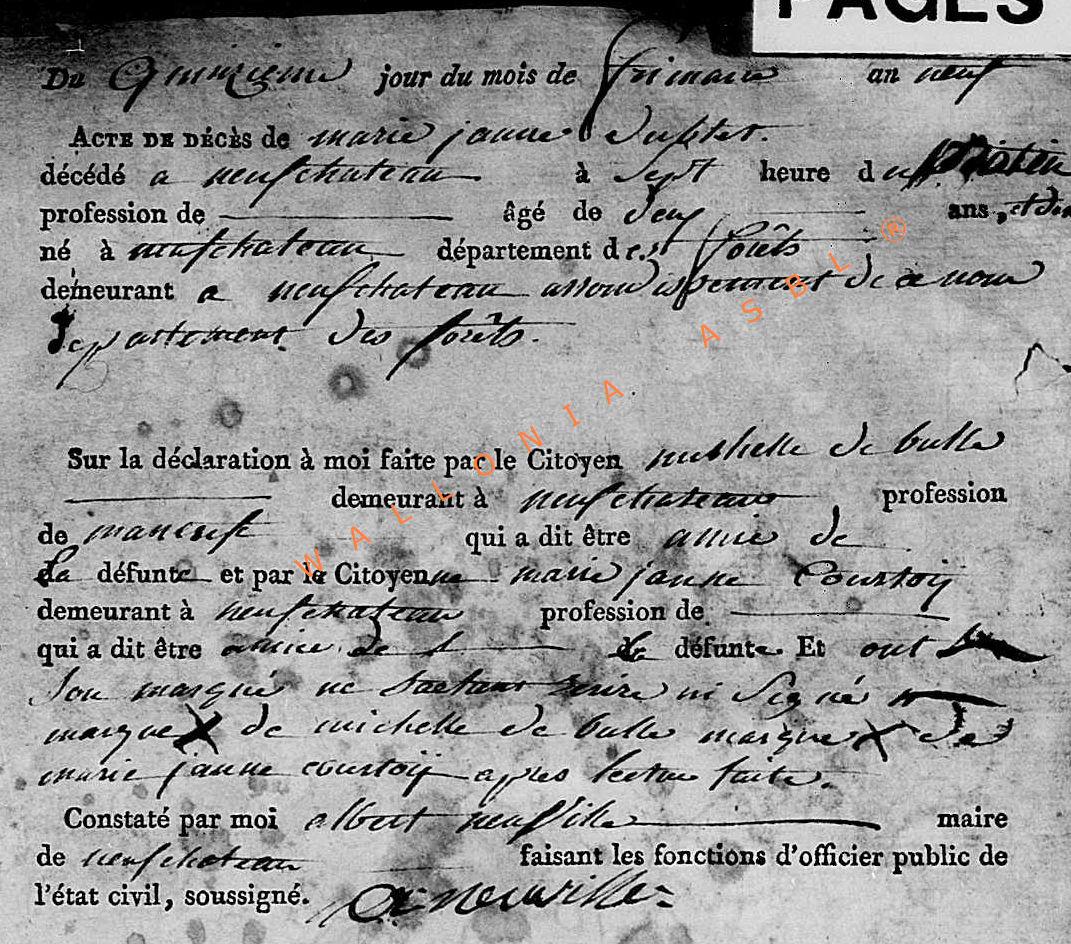 PAGES
Du Quinzieme jour du mois de frimaire an neuf
ACTE DE DÉCÈS de marie janne
décédé a neufchateau à Sept heure du Matin
profession de âgé de deux ans, et
né à neufchateau département des forêts
demeurant a neufchateau arrondispement de
departement des forêts.
Sur la déclaration à moi faite par le Citoyen michelle de bulle
demeurant à neufchateau profession
de qui a dit être amie de
La défunte et par le Citoyenne marie janne Courtoij
demeurant à neufchateau profession de
qui a dit être amice de la défunte. Et ont
Sou marqué ne Sachant Ecrire ni Signé
marque X de michelle de bulle marque X de
marie janne courtoij apres lecture faite.
Constaté par moi albert neufville maire
de neufchateau faisant les fonctions d'officier public de
l'état civil, soussigné. A: Neuville
WALLONIA ASBL ®